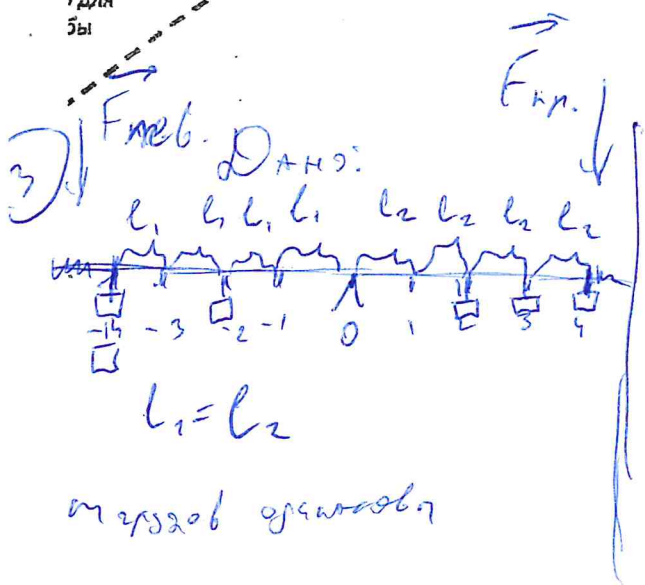 для
бы
3) Fлев. Fпр.
Дано:
l₁ l₁ l₁ l₁ l₂ l₂ l₂ l₂
-4 -3 -2 -1 0 1 2 3 4
l₁ = l₂
m грузов одинаковы